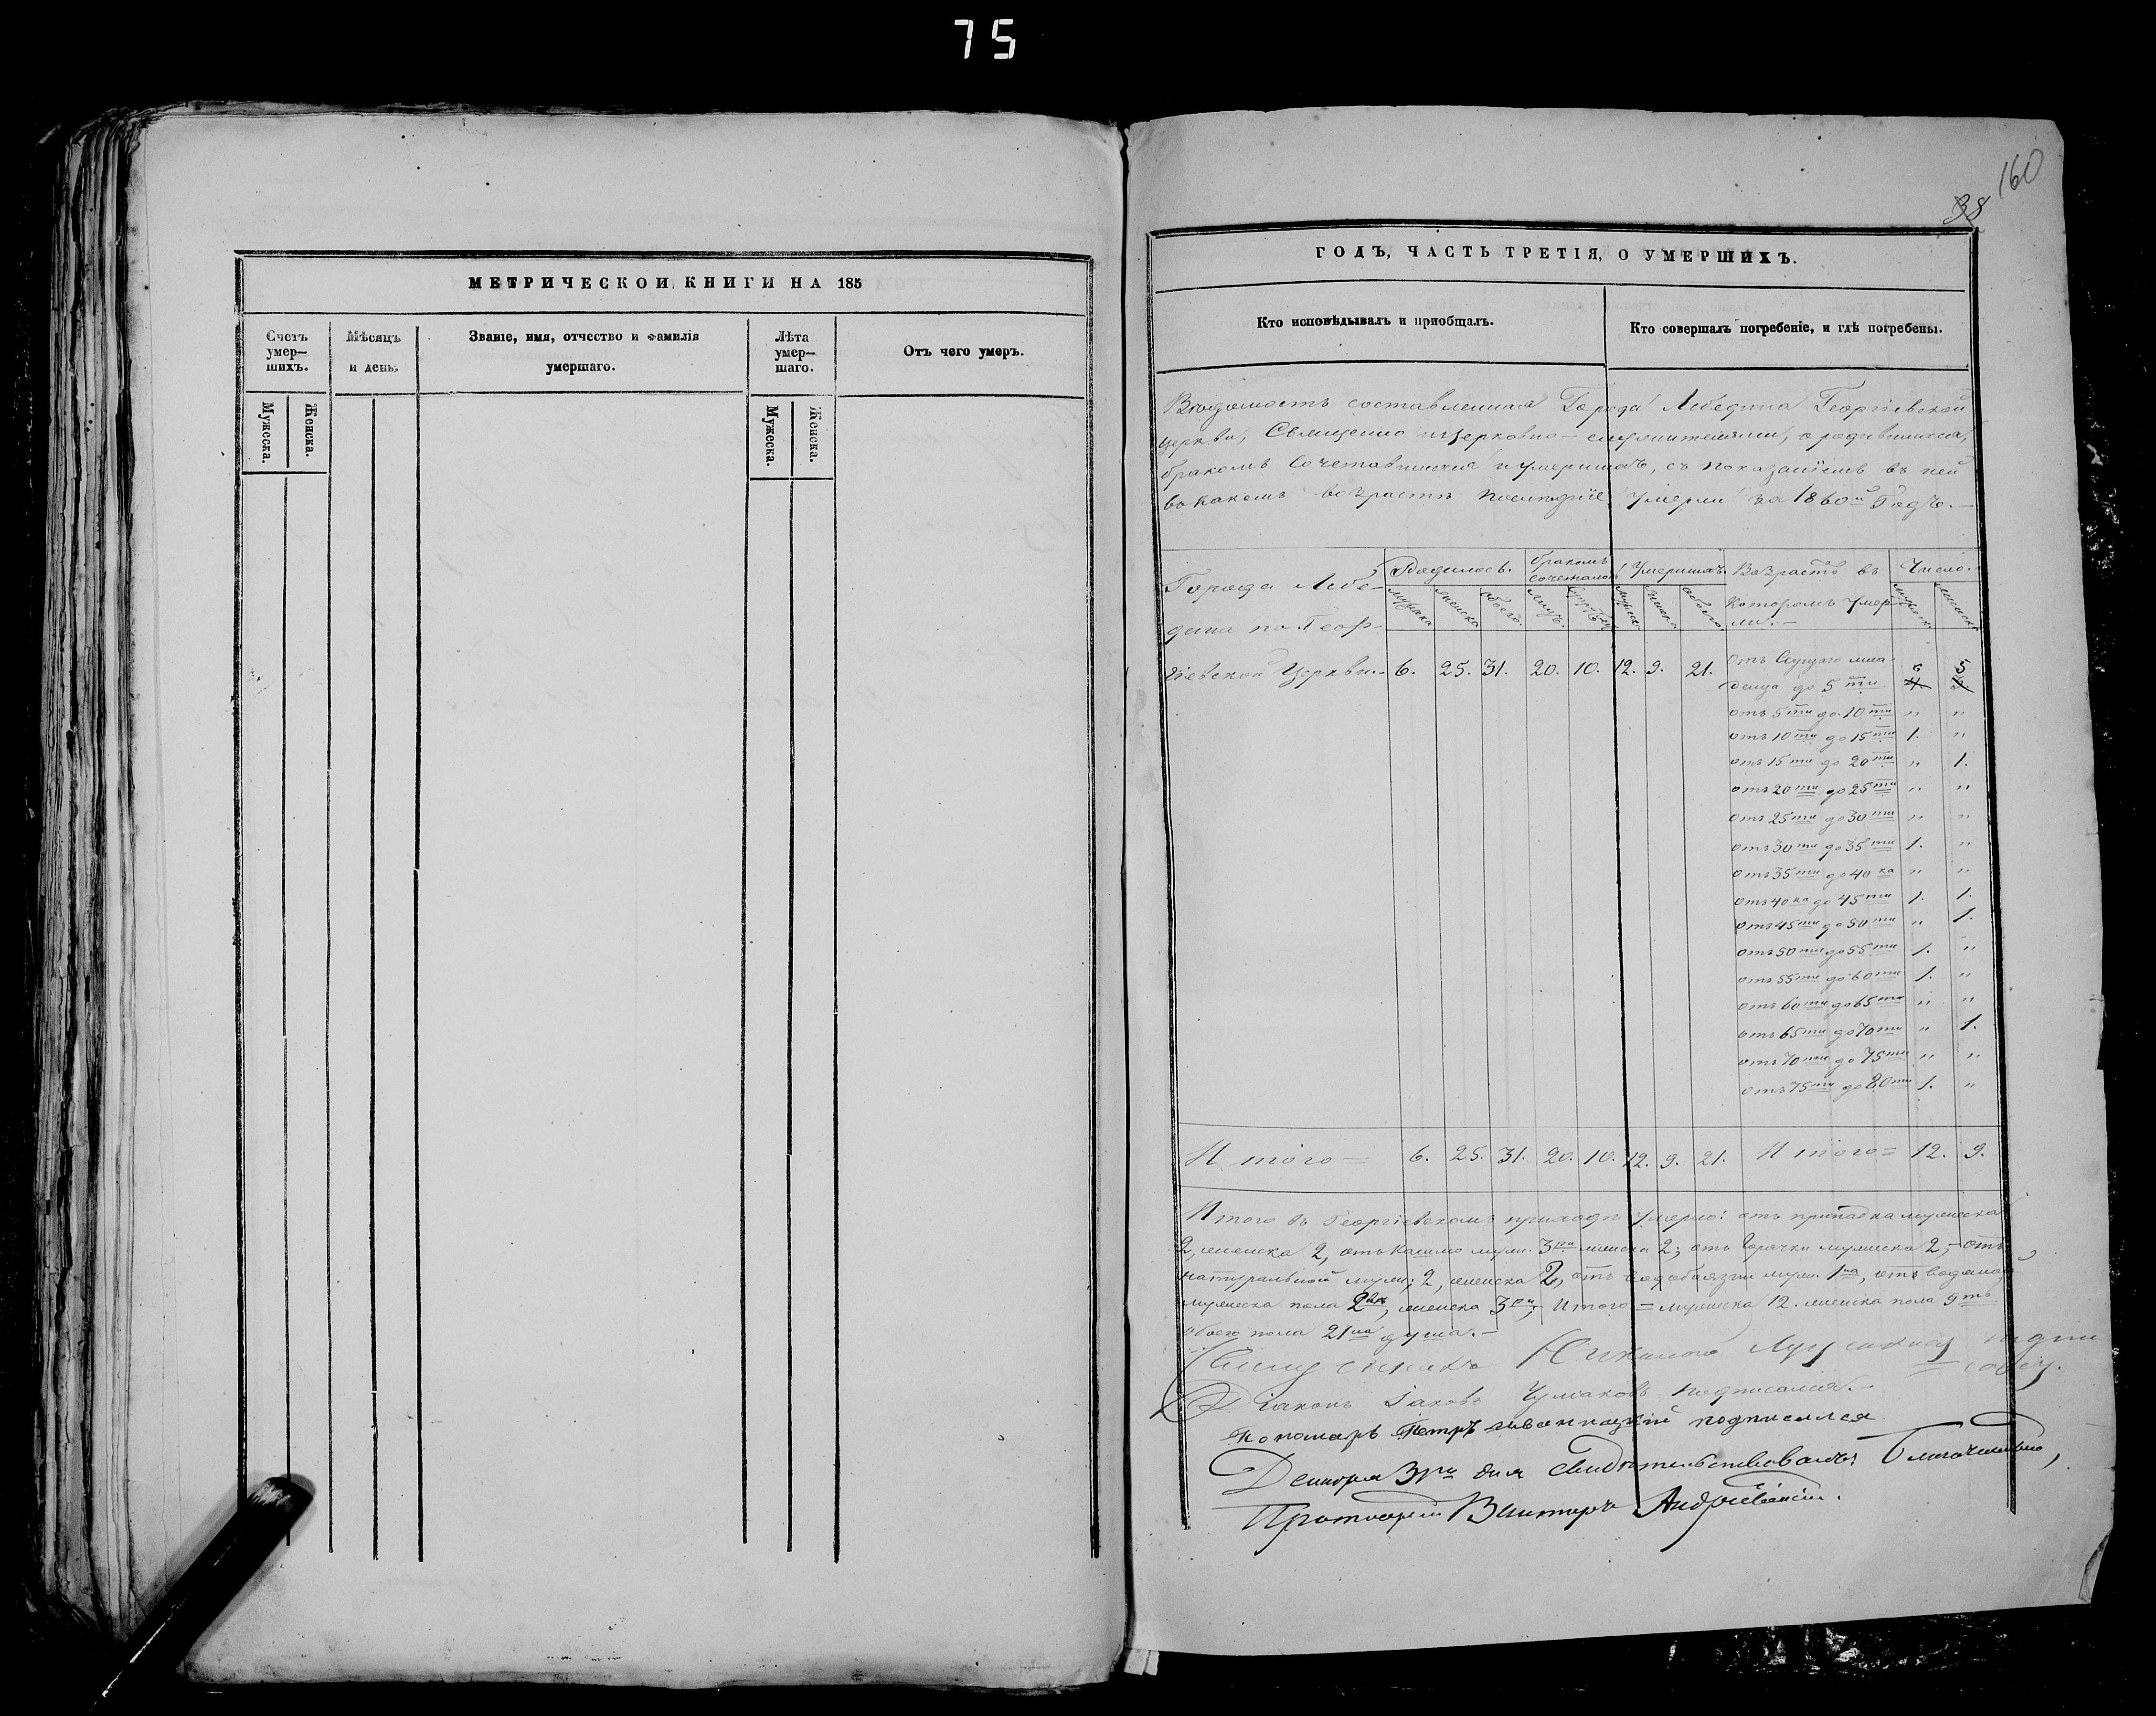 75
160
38
МЕТРИЧЕСКОЙ КНИГИ НА 185
Счетъ умер—шихъ.
Мѣсяцъ и день.
Званіе, имя, отчество и фамилія умершаго.
Лѣта умер—шаго.
Отъ чего умеръ.
Мужеска.
Женска.
Мужеска.
Женска.
ГОДЪ, ЧАСТЬ ТРЕТІЯ, О УМЕРШИХЪ.
Кто исповѣдывалъ и пріобщалъ.
Кто совершалъ погребеніе, и гдѣ погребены.
Вѣдомость составленная Города Лебедина Георгіевской
церкви, Священно и церковно-служителями, о родившихся,
бракомъ сочетавшихся и умершихъ, съ показаніемъ въ ней
въ какомъ возрастѣ послѣдніе умерли за 1860й Годъ.—
Города Лебе-
дина по Геор-
гіевской Церкви
Родилось.
Бракомъ сочеталось
Умершихъ.
Возрастъ въ
которомъ умер-
ли.—
Число.
мужеска женска обоего.
мужеска женска обоего.
мужеска женска
6. 25. 31. 20. 10. 12. 9. 21.
Отъ Сущаго мла-
денца до 5ти 6 5
отъ 5ти до 10ти " "
отъ 10ти до 15ти 1. "
отъ 15ти до 20ти " 1.
отъ 20ти до 25ти " "
отъ 25ти до 30ти " "
отъ 30ти до 35ти 1. "
отъ 35ти до 40ка " "
отъ 40ка до 45ти 1. 1.
отъ 45ти до 50ти " 1.
отъ 50ти до 55ти 1. "
отъ 55ти до 60ти 1. "
отъ 60ти до 65ти " "
отъ 65ти до 70ти " 1.
отъ 70ти до 75ти " "
отъ 75ти до 80ти 1. "
Итого= 6. 25. 31. 20. 10. 12. 9. 21. Итого= 12. 9.
Итого въ Георгіевскомъ приходѣ умерло: отъ припадка мужеска
2, женска 2, отъ кашлю муж. 3ри женска 2; отъ Горячки мужеска 2,—отъ
натуральной муж; 2, женска 2, отъ муж. 1на, отъ водяной
мужеска пола 2вѣ, женска 3ри, Итого= мужеска 12. женска пола 9ть
обоего пола 21на душа.—
Священникъ
Діаконъ Іаковъ Чумаковъ подписался.—
Пономарь Петръ подписался
Декабря 3го дня свидѣтельствовалъ: Благочинный,
Протоіерей Викторъ Андріевскій.